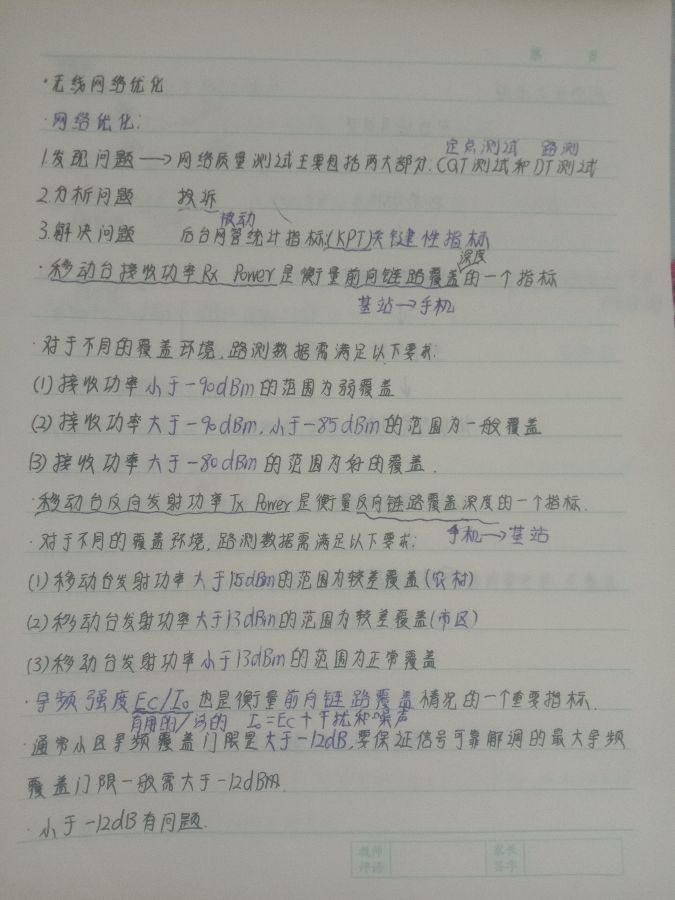 ·无线网络优化
·网络优化:
定点测试 路测
1.发现问题 → 网络质量测试主要包括两大部分.CQT测试和DT测试
2.分析问题 投诉
被动
3.解决问题 后台网管统计指标(KPT)关键性指标
深度
·移动台接收功率Rx Power是衡量前向链路覆盖的一个指标
基站→手机
·对于不同的覆盖环境,路测数据需满足以下要求:
(1)接收功率小于-90dBm的范围为弱覆盖
(2)接收功率大于-90dBm,小于-85dBm的范围为一般覆盖
(3)接收功率大于-80dBm的范围为好的覆盖.
·移动台反向发射功率Tx Power是衡量反向链路覆盖深度的一个指标.
·对于不同的覆盖环境,路测数据需满足以下要求: 手机→基站
(1)移动台发射功率大于15dBm的范围为较差覆盖(农村)
(2)移动台发射功率大于13dBm的范围为较差覆盖(市区)
(3)移动台发射功率小于13dBm的范围为正常覆盖
·导频强度Ec/Io也是衡量前向链路覆盖情况的一个重要指标.
有用的/总的 Io=Ec+干扰和噪声
·通常小区导频覆盖门限是大于-12dB,要保证信号可靠解调的最大导频
覆盖门限一般需大于-12dB.
·小于-12dB有问题.
教师评语 家长签字